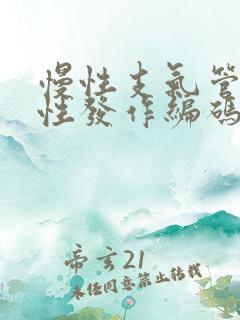 慢性支氣管
性發作編碼
帝玄21
未经同意禁止转载